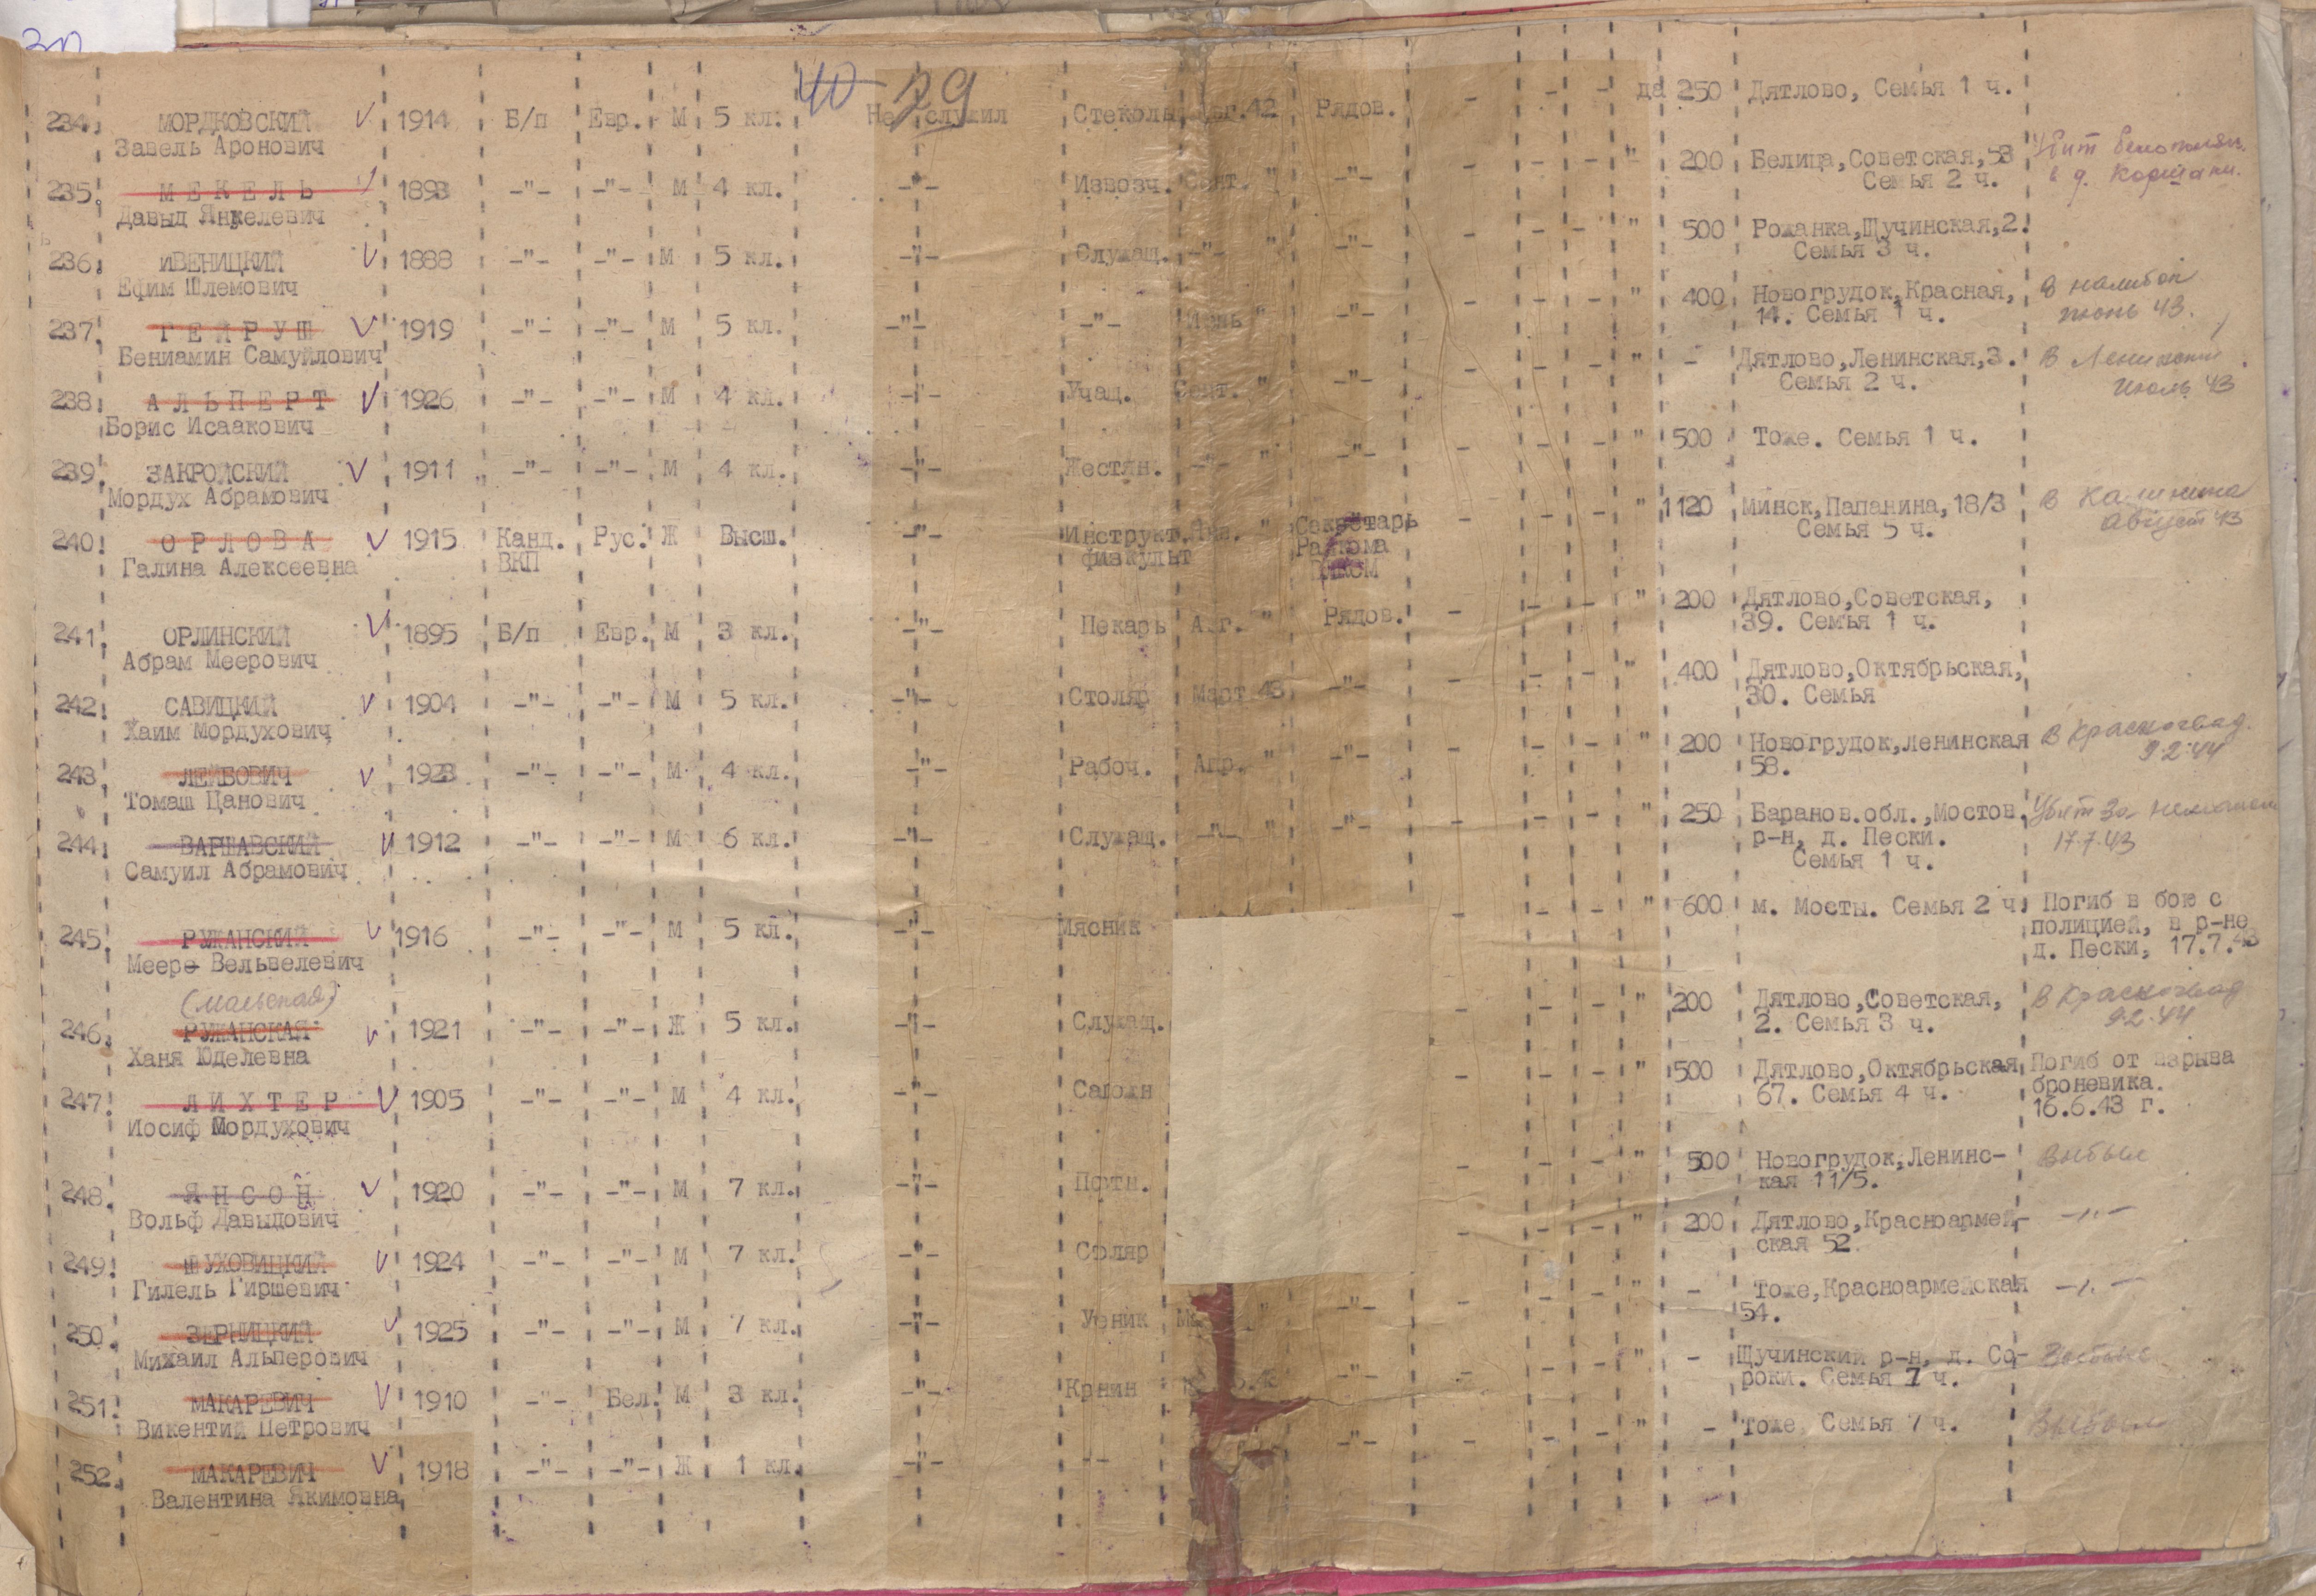 40 29
234. МОРДКОВСКИЙ V 1914 Б/п Евр. М 5 кл. Не служил Стеколь Авг.42 Рядов. - - - да 250 Дятлово, Семья 1 ч.
Завель Аронович
235. МЕКЕЛЬ V 1893 -"- -"- М 4 кл. -"- Извозч. Сент. " - - - " 200 Белица,Советская,53 Убит
Давыд Янкелевич Семья 2 ч. в д.
236. ИВЕНИЦКИЙ V 1888 -"- -"- М 5 кл. -"- Служащ. -"- " -"- - - - " 500 Рожанка,Щучинская,2.
Ефим Шлемович Семья 3 ч.
237. ГЕЙРУШ V 1919 -"- -"- М 5 кл. -"- -"- " -"- - - - " 400 Новогрудок,Красная, В налибок
Бениамин Самуйлович 14. Семья 1 ч. июнь 43.
238. АЛЬПЕРТ V 1926 -"- -"- М 4 кл. -"- Учащ. Сент. " -"- - - - " - Дятлово,Ленинская,3. В
Борис Исаакович Семья 2 ч. июль 43
239. ЗАКРОЙСКИЙ V 1911 -"- -"- М 4 кл. -"- Жестян. -"- " -"- - - - " 500 Тоже. Семья 1 ч.
Мордух Абрамович
240. ОРЛОВА V 1915 Канд. Рус. Ж Высш. -"- Инструкт. Янв. " Секретарь - - - " 1120 Минск,Папанина,18/3 В Калинина
Галина Алексеевна ВКП физкульт Райкома Семья 5 ч. Август 43
241. ОРЛИНСКИЙ V 1895 Б/п Евр. М 3 кл. -"- Пекарь Авг. " Рядов. - - - " 200 Дятлово,Советская,
Абрам Меерович 39. Семья 1 ч.
242. САВИЦКИЙ V 1904 -"- -"- М 5 кл. -"- Столяр Март 43 -"- - - - " 400 Дятлово,Октябрьская,
Хаим Мордухович 30. Семья
243. ЛЕЙБОВИЧ V 1923 -"- -"- М 4 кл. -"- Рабоч. Апр. " -"- - - - " 200 Новогрудок,Ленинская В Красногвад.
Томаш Цанович 58. 9.2.44
244. ВАРШАВСКИЙ V 1912 -"- -"- М 6 кл. -"- Служащ. -"- " -"- - - - " 250 Баранов.обл.,Мостов. Убит за неманом
Самуил Абрамович р-н, д. Пески. 17.7.43
Семья 1 ч.
245. РУЖАНСКИЙ V 1916 -"- -"- М 5 кл. -"- Мясник - - - " 600 м. Мосты. Семья 2 ч. Погиб в бою с
Меере Вельвелевич полицией, в р-не
д. Пески, 17.7.43
(мальская)
246. РУЖАНСКАЯ V 1921 -"- -"- Ж 5 кл. -"- Служащ. - - - " 200 Дятлово,Советская, В Красногвад
Ханя Юделевна 2. Семья 3 ч. 9.2.44
247. ЛИХТЕР V 1905 -"- -"- М 4 кл. -"- Сапожн - - - " 500 Дятлово,Октябрьская Погиб от взрыва
Иосиф Мордухович 67. Семья 4 ч. броневика.
16.6.43 г.
248. ЯНСОН V 1920 -"- -"- М 7 кл. -"- Портн. - - - " 500 Новогрудок,Ленинс- Выбыл
Вольф Давыдович кая 11/5.
249. ШУХОВИЦКИЙ V 1924 -"- -"- М 7 кл. -"- Столяр - - - " 200 Дятлово,Красноармей- -"-
Гилель Гиршевич ская 52.
250. ЗЕРНИЦКИЙ V 1925 -"- -"- М 7 кл. -"- Уеник " -"- - - - " - Тоже,Красноармейская -"-
Михаил Альперович 54.
251. МАКАРЕВИЧ V 1910 -"- Бел. М 3 кл. -"- -"- - - - " - Щучинский р-н, д. Со- Выбыл
Викентий Петрович роки. Семья 7 ч.
252. МАКАРЕВИЧ V 1918 -"- -"- Ж 1 кл. -"- -"- - - - " - Тоже, Семья 7 ч. Выбыл
Валентина Якимовна